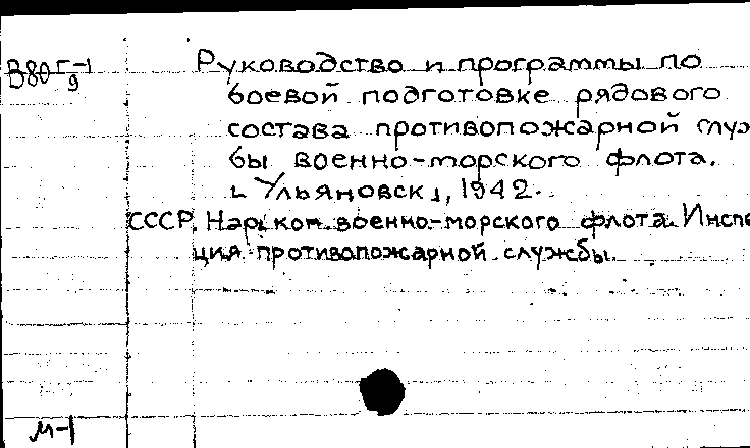 В80 Г-1
9
Руководство и программы по
боевой подготовке рядового
состава противопожарной служ
бы военно-морского флота.
[Ульяновск], 1942.
СССР. Нар. ком. военно-морского флота. Инспе
ция противопожарной службы.
м-1